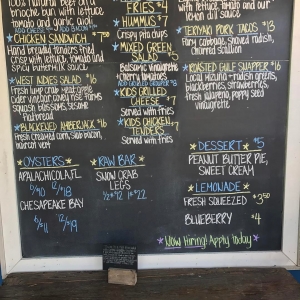 100% natural beef on a
brioche bun with lettuce
tomato and garlic aioli
CHICKEN SANDWICH $
Hand breaded tenders fried
crisp with lettuce, tomato and
spicy buttermilk sauce
WEST INDIES SALAD $16
Fresh lump crab meat, apple
cider vinegar,
squash blossoms, sessoms
flatbread
BLACKENED AMBERJACK $16
Fresh creamed corn, slab bacon,
haricot vert
FRIES $4
HUMMUS $7
Crispy pita chips
MIXED GREEN
SALAD
Balsamic vinaigrette
Cherry tomatoes
ADD CHICKEN OR SHRIMP $8
KIDS GRILLED
CHEESE $7
Served with fries
KIDS CHICKEN
TENDERS $7
Served with fries
with lettuce, tomato and our
lemon dill sauce
TERIYAKI PORK TACOS $13
Pork, cabbage, shaved radish,
charred scallion
ROASTED GULF SNAPPER $16
Local mizuna + radish greens,
blackberries, strawberries,
fresh jalapeno, poppy seed
vinaigrette
OYSTERS
APALACHICOLA FL
6/$10 12/$18
CHESAPEAKE BAY
6/$11 12/$19
RAW BAR
SNOW CRAB
LEGS
1/2# $12 1# $22
DESSERT $5
PEANUT BUTTER PIE,
SWEET CREAM
LEMONADE
FRESH SQUEEZED $3.50
BLUEBERRY $4
*Now Hiring! Apply today*